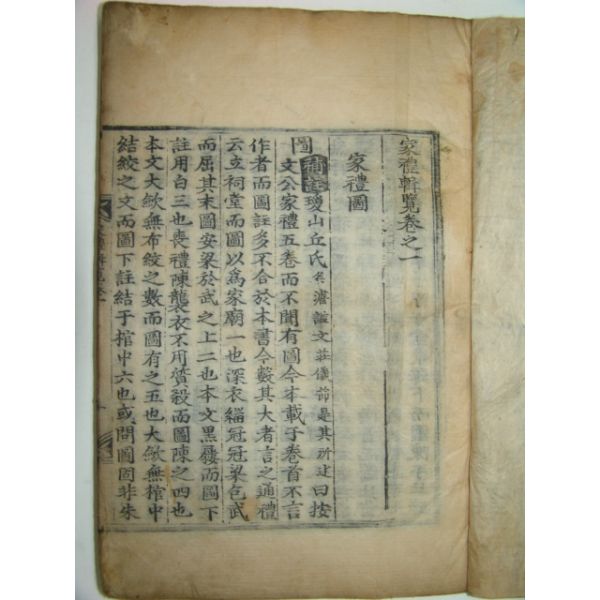 家禮輯覽卷之一
家禮圖
圖 補註 瓊山丘氏名濬謚文莊儀節是其所述曰按
文公家禮五卷而不聞有圖今本載于卷首不言
作者而圖註多不合於本書今數其大者言之通禮
云立祠堂而圖以爲家廟一也深衣緇冠冠梁包武
而屈其末圖安梁於武之上二也本文黑履而圖下
註用白三也喪禮陳襲衣不用質殺而圖陳之四也
本文大斂無布絞之數而圖有之五也大斂無棺中
結絞之文而圖下註結于棺中六也或問圖固非朱